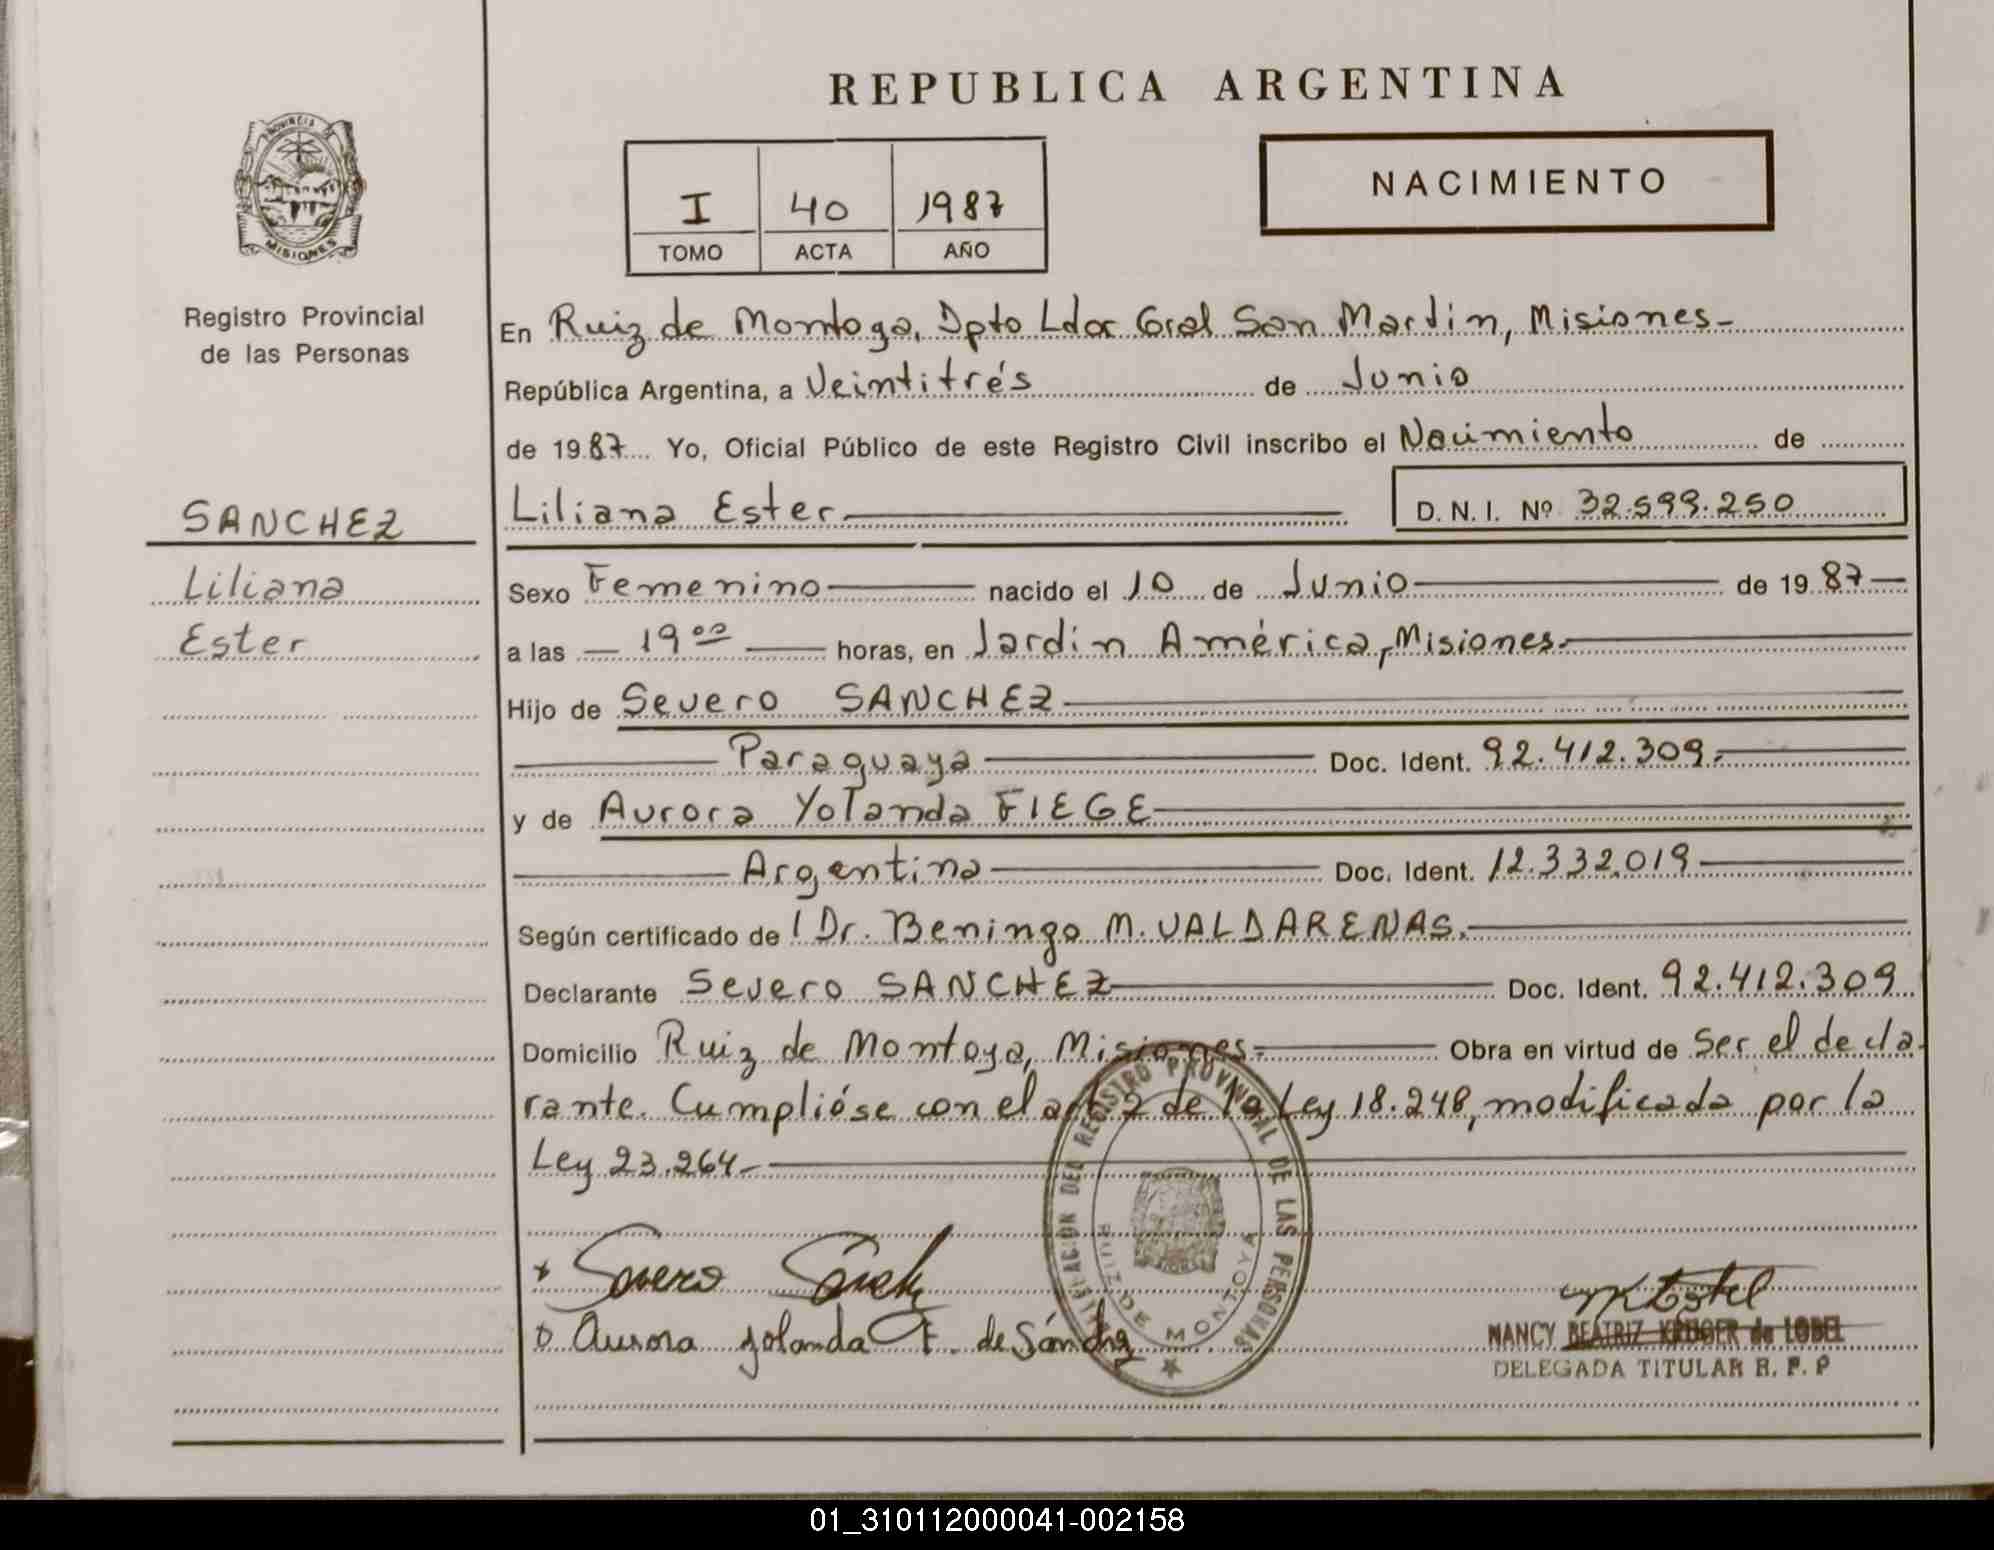 REPUBLICA ARGENTINA
PROVINCIA
MISIONES
Registro Provincial
de las Personas
I 40 1987
TOMO ACTA AÑO
NACIMIENTO
En Ruiz de Montoya, Dpto Ldor Gral San Martin, Misiones-
República Argentina, a Veintitrés de Junio
de 1987 Yo, Oficial Público de este Registro Civil inscribo el Nacimiento de
SANCHEZ
Liliana
Ester
Liliana Ester D. N. I. Nº 32.599.250
Sexo Femenino nacido el 10 de Junio de 1987
a las 19 00 horas, en Jardín América, Misiones.
Hijo de Severo SANCHEZ
Paraguaya Doc. Ident. 92.412.309.
y de Aurora Yolanda FIEGE
Argentina Doc. Ident. 12.332.019
Según certificado de l Dr. Beningo M. VALDARENAS.
Declarante Severo SANCHEZ Doc. Ident. 92.412.309
Domicilio Ruiz de Montoya, Misiones- Obra en virtud de ser el decla-
rante. Cumplióse con el art 2 de la Ley 18.248, modificada por la
Ley 23.264.-
DEL REGISTRO PROVINCIAL DE LAS PERSONAS
RUIZ DE MONTOYA
Severo Sánch
Aurora Yolanda F. de Sánchz
NANCY BEATRIZ KRUGER de LOBEL
DELEGADA TITULAR R. P. P
01_310112000041-002158